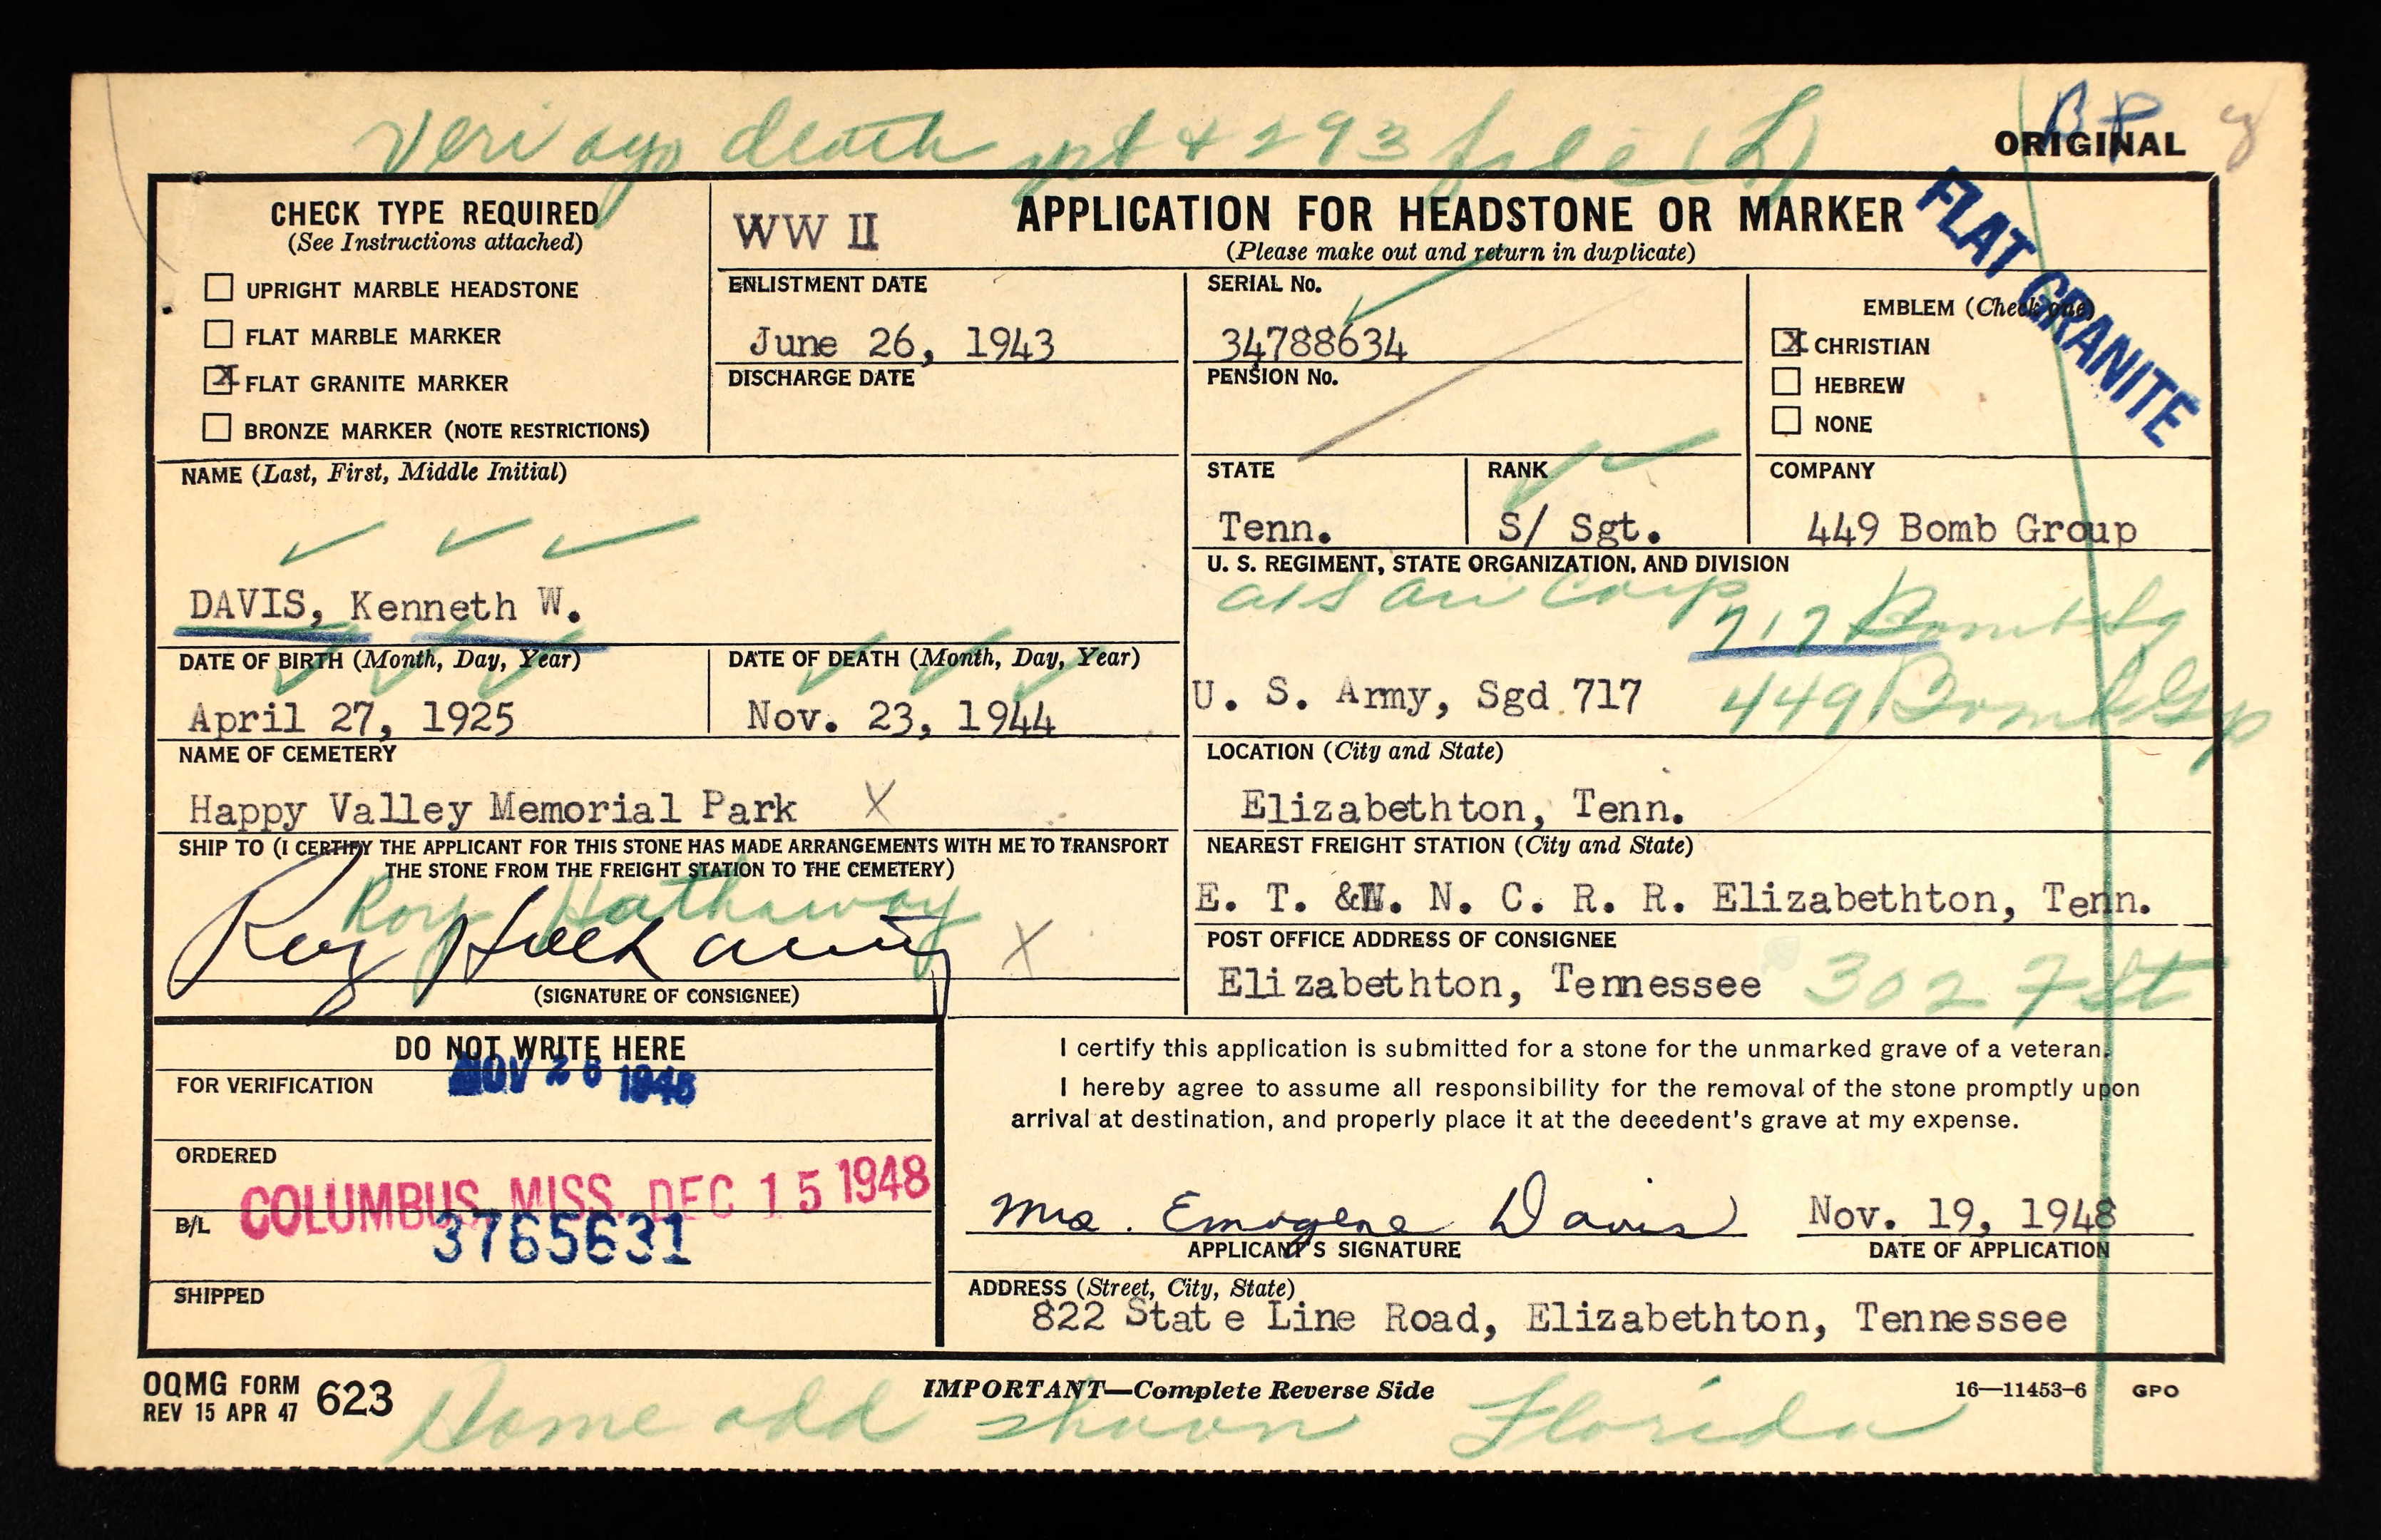 Veri ago death rpt & 293 file (L)
BP
ORIGINAL
CHECK TYPE REQUIRED
(See Instructions attached)
UPRIGHT MARBLE HEADSTONE
FLAT MARBLE MARKER
X FLAT GRANITE MARKER
BRONZE MARKER (NOTE RESTRICTIONS)
WW II
APPLICATION FOR HEADSTONE OR MARKER
(Please make out and return in duplicate)
FLAT GRANITE
ENLISTMENT DATE
June 26, 1943
DISCHARGE DATE
SERIAL No.
34788634
PENSION No.
EMBLEM (Check one)
X CHRISTIAN
HEBREW
NONE
NAME (Last, First, Middle Initial)
DAVIS, Kenneth W.
STATE
Tenn.
RANK
S/ Sgt.
COMPANY
449 Bomb Group
U. S. REGIMENT, STATE ORGANIZATION, AND DIVISION
Air Corp
717 Bomb Sq
U. S. Army, Sgd 717
449 Bomb Gp
DATE OF BIRTH (Month, Day, Year)
April 27, 1925
DATE OF DEATH (Month, Day, Year)
Nov. 23, 1944
NAME OF CEMETERY
Happy Valley Memorial Park X
LOCATION (City and State)
Elizabethton, Tenn.
SHIP TO (I CERTIFY THE APPLICANT FOR THIS STONE HAS MADE ARRANGEMENTS WITH ME TO TRANSPORT
THE STONE FROM THE FREIGHT STATION TO THE CEMETERY)
Roy Hathaway
Roy Hathaway X
(SIGNATURE OF CONSIGNEE)
NEAREST FREIGHT STATION (City and State)
E. T. &W. N. C. R. R. Elizabethton, Tenn.
POST OFFICE ADDRESS OF CONSIGNEE
Elizabethton, Tennessee 302 F St
DO NOT WRITE HERE
FOR VERIFICATION
NOV 26 1948
ORDERED
COLUMBUS, MISS. DEC 15 1948
B/L
3765631
SHIPPED
I certify this application is submitted for a stone for the unmarked grave of a veteran.
I hereby agree to assume all responsibility for the removal of the stone promptly upon
arrival at destination, and properly place it at the decedent's grave at my expense.
Mrs. Emogene Davis
APPLICANT'S SIGNATURE
Nov. 19, 1948
DATE OF APPLICATION
ADDRESS (Street, City, State)
822 State Line Road, Elizabethton, Tennessee
OQMG FORM 623
REV 15 APR 47
IMPORTANT—Complete Reverse Side
16—11453-6 GPO
Home add shown Florida